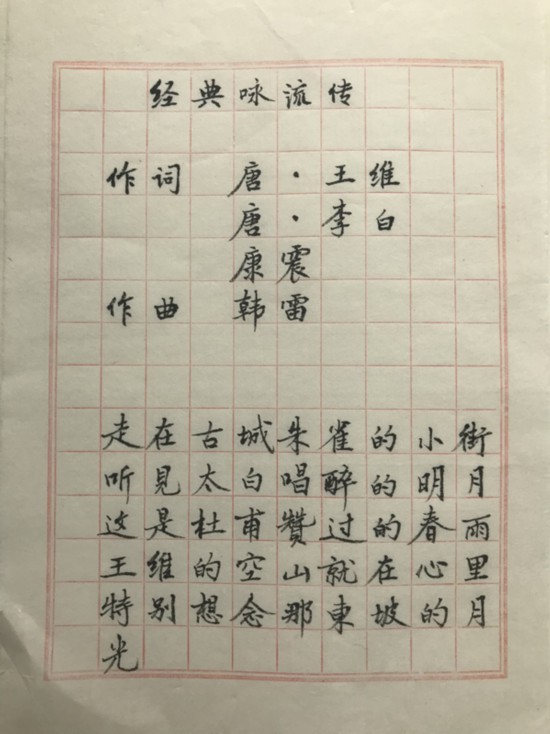 经典咏流传
作词 唐·王维
唐·李白
康震
作曲 韩雷
走在古城朱雀的小街
听見太白唱醉的明月
这是杜甫赞过的春雨
王維的空山就在心里
特别想念那東坡的月
光